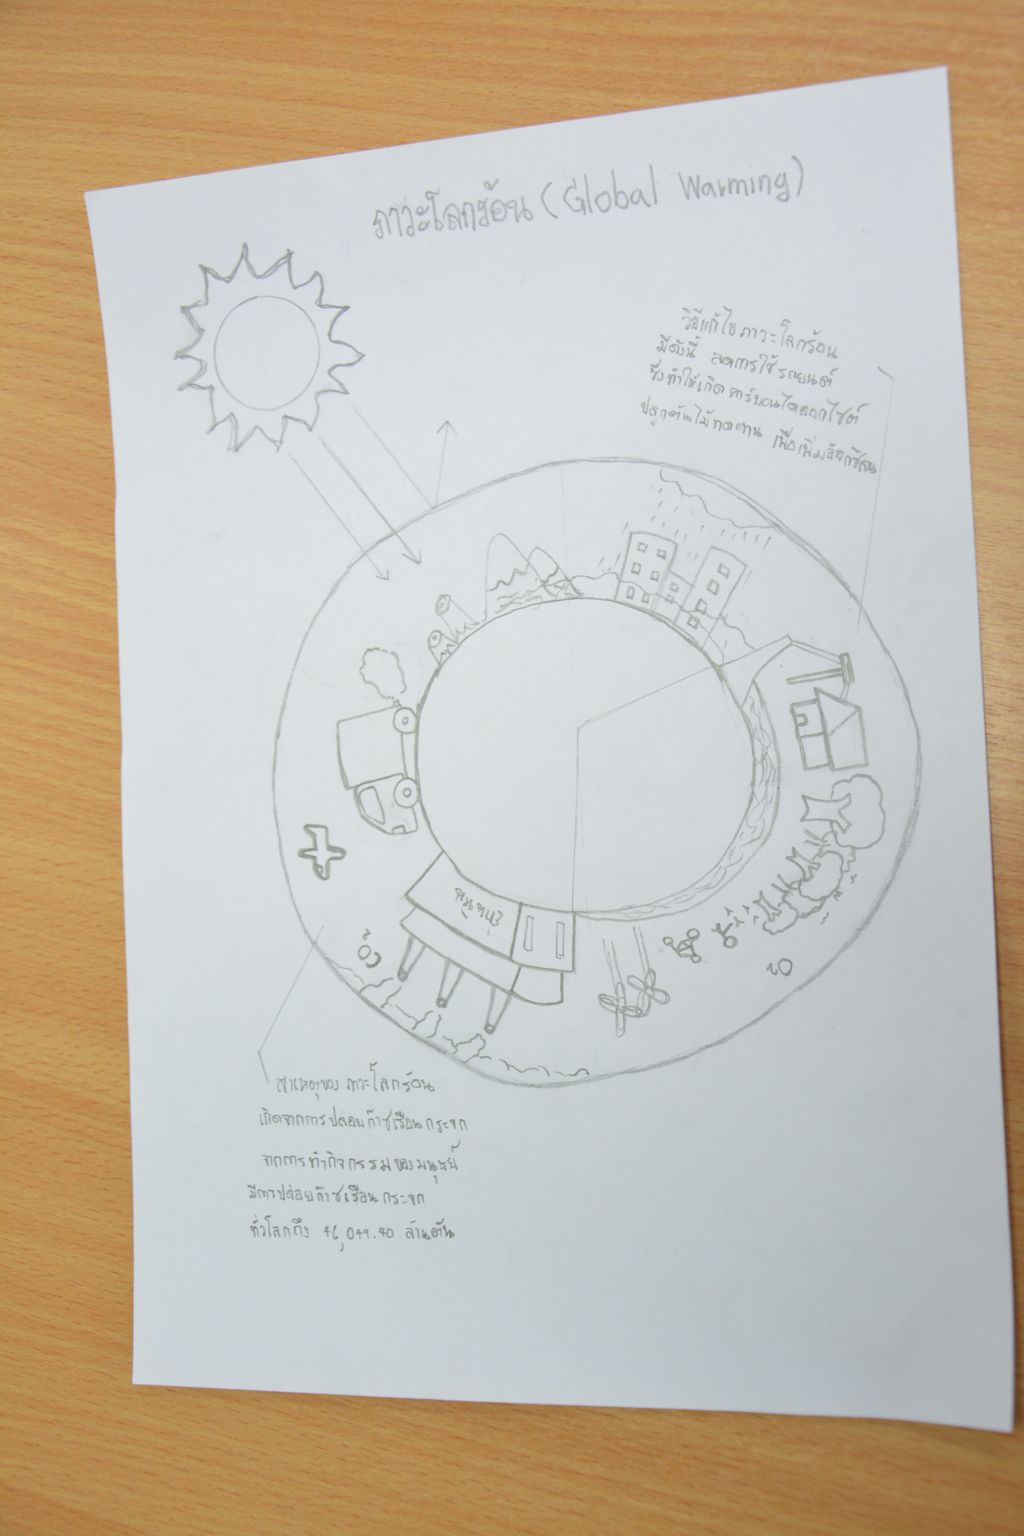 ภาวะโลกร้อน (Global Warming)
วิธีแก้ไขภาวะโลกร้อน
มีดังนี้ ลดการใช้รถยนต์
ซึ่งทำให้เกิดคาร์บอนไดออกไซต์
ปลูกต้นไม้ทดแทน เพื่อเพิ่มอ๊อกซิเจน
สาเหตุของ ภาวะโลกร้อน
เกิดจากการปล่อยก๊าซเรือนกระจก
จากการทำกิจกรรมของมนุษย์
มีการปล่อยก๊าซเรือนกระจก
ทั่วโลกถึง 46,049.40 ล้านตัน